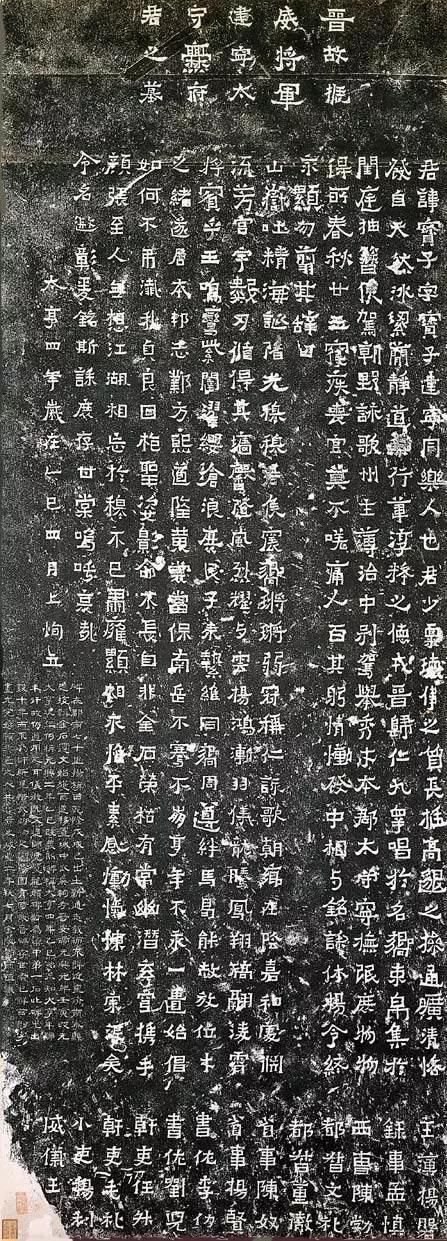 晉故振
威將軍
建寧太
守爨府
君之墓
君諱寶子字寶子建寧同樂人也君少稟瓌偉之質長挺高邈之操通曠清恪
發自天然冰絜簡靜道兼行葦淳粹之德戎晉歸仁九皋唱於名嚮束帛集於
閨庭抽簪俟駕朝野詠歌州主簿治中別駕舉秀才本郡太守寧撫氓庶物物
得所春秋廿五寢疾喪官莫不嗟痛人百其躬情慟發中相与銘誄休揚令終
永顯勿翦其辭曰
山嶽吐精海誕陷光穆穆君侯震嚮鏘鏘弱冠稱仁詠歌朝鄉在陰嘉和處淵
流芳宮宇數仞循得其墻馨隨風烈耀与雲揚鴻漸羽儀龍騰鳳翔矯翮凌霄
將賓乎王鳴鸞紫闥濯纓滄浪庶民子來縶維同嚮周遵絆馬曷能赦放位才
之緒遂居本邦志鄴方熙道隆黃裳當保南岳不騫不崩享年不永一匱始倡
如何不弔殲我貞良回抱聖姿影命不長自非金石榮枯有常幽潛玄穹攜手
顏張至人無想江湖相忘於穆不已肅雍顯相永惟平素感慟忾慷林宗沒矣
令名遐彰爰銘斯誄庶存甘棠嗚呼哀哉
太亨四年歲在乙巳四月上恂立
主簿楊磐
錄事孟慎
西曹陳勃
都督文礼
都督董徹
省事陳奴
省事楊賢
書佐李仂
書佐劉兒
幹吏任升
幹吏毛礼
小吏楊利
威儀王